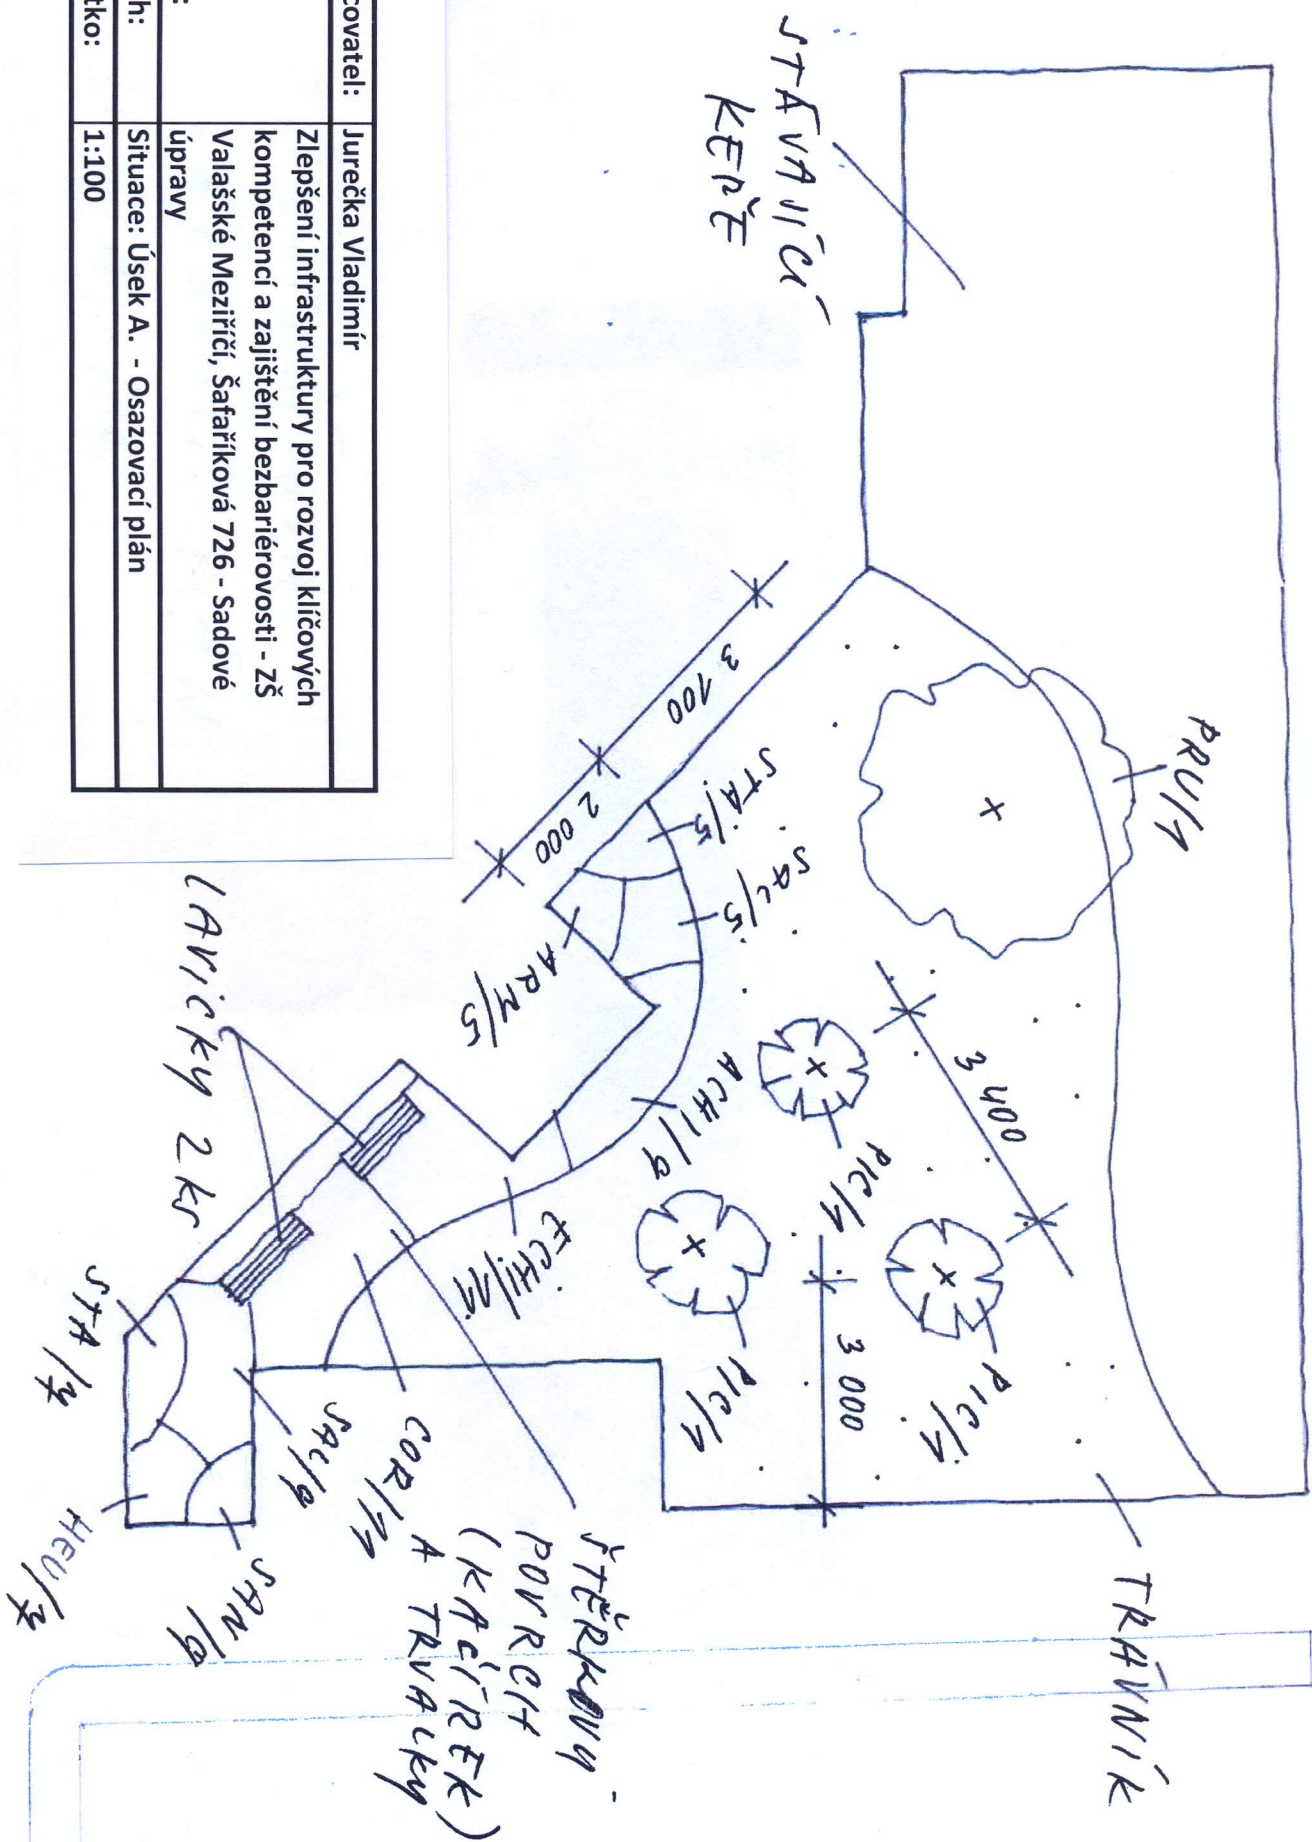 covatel: Jurečka Vladimír
Zlepšení infrastruktury pro rozvoj klíčových
kompetencí a zajištění bezbariérovosti - ZŠ
Valašské Meziříčí, Šafaříková 726 - Sadové
úpravy
Situace: Úsek A. - Osazovací plán
tko: 1:100
STÁVAJÍCÍ
KEŘE
PRU/1
3 100
2 000
STA/5
SAL/5
ARM/5
3 400
ACHI/9
PIC/1
PIC/1
PIC/1
3 000
ECHI/11
LAVIČKY 2 ks
STA/7
SAL/9
COR/11
HEU/7
SAN/9
ŠTĚRKOVÝ
POVRCH
(KAČÍREK)
A TRVALKY
TRÁVNÍK